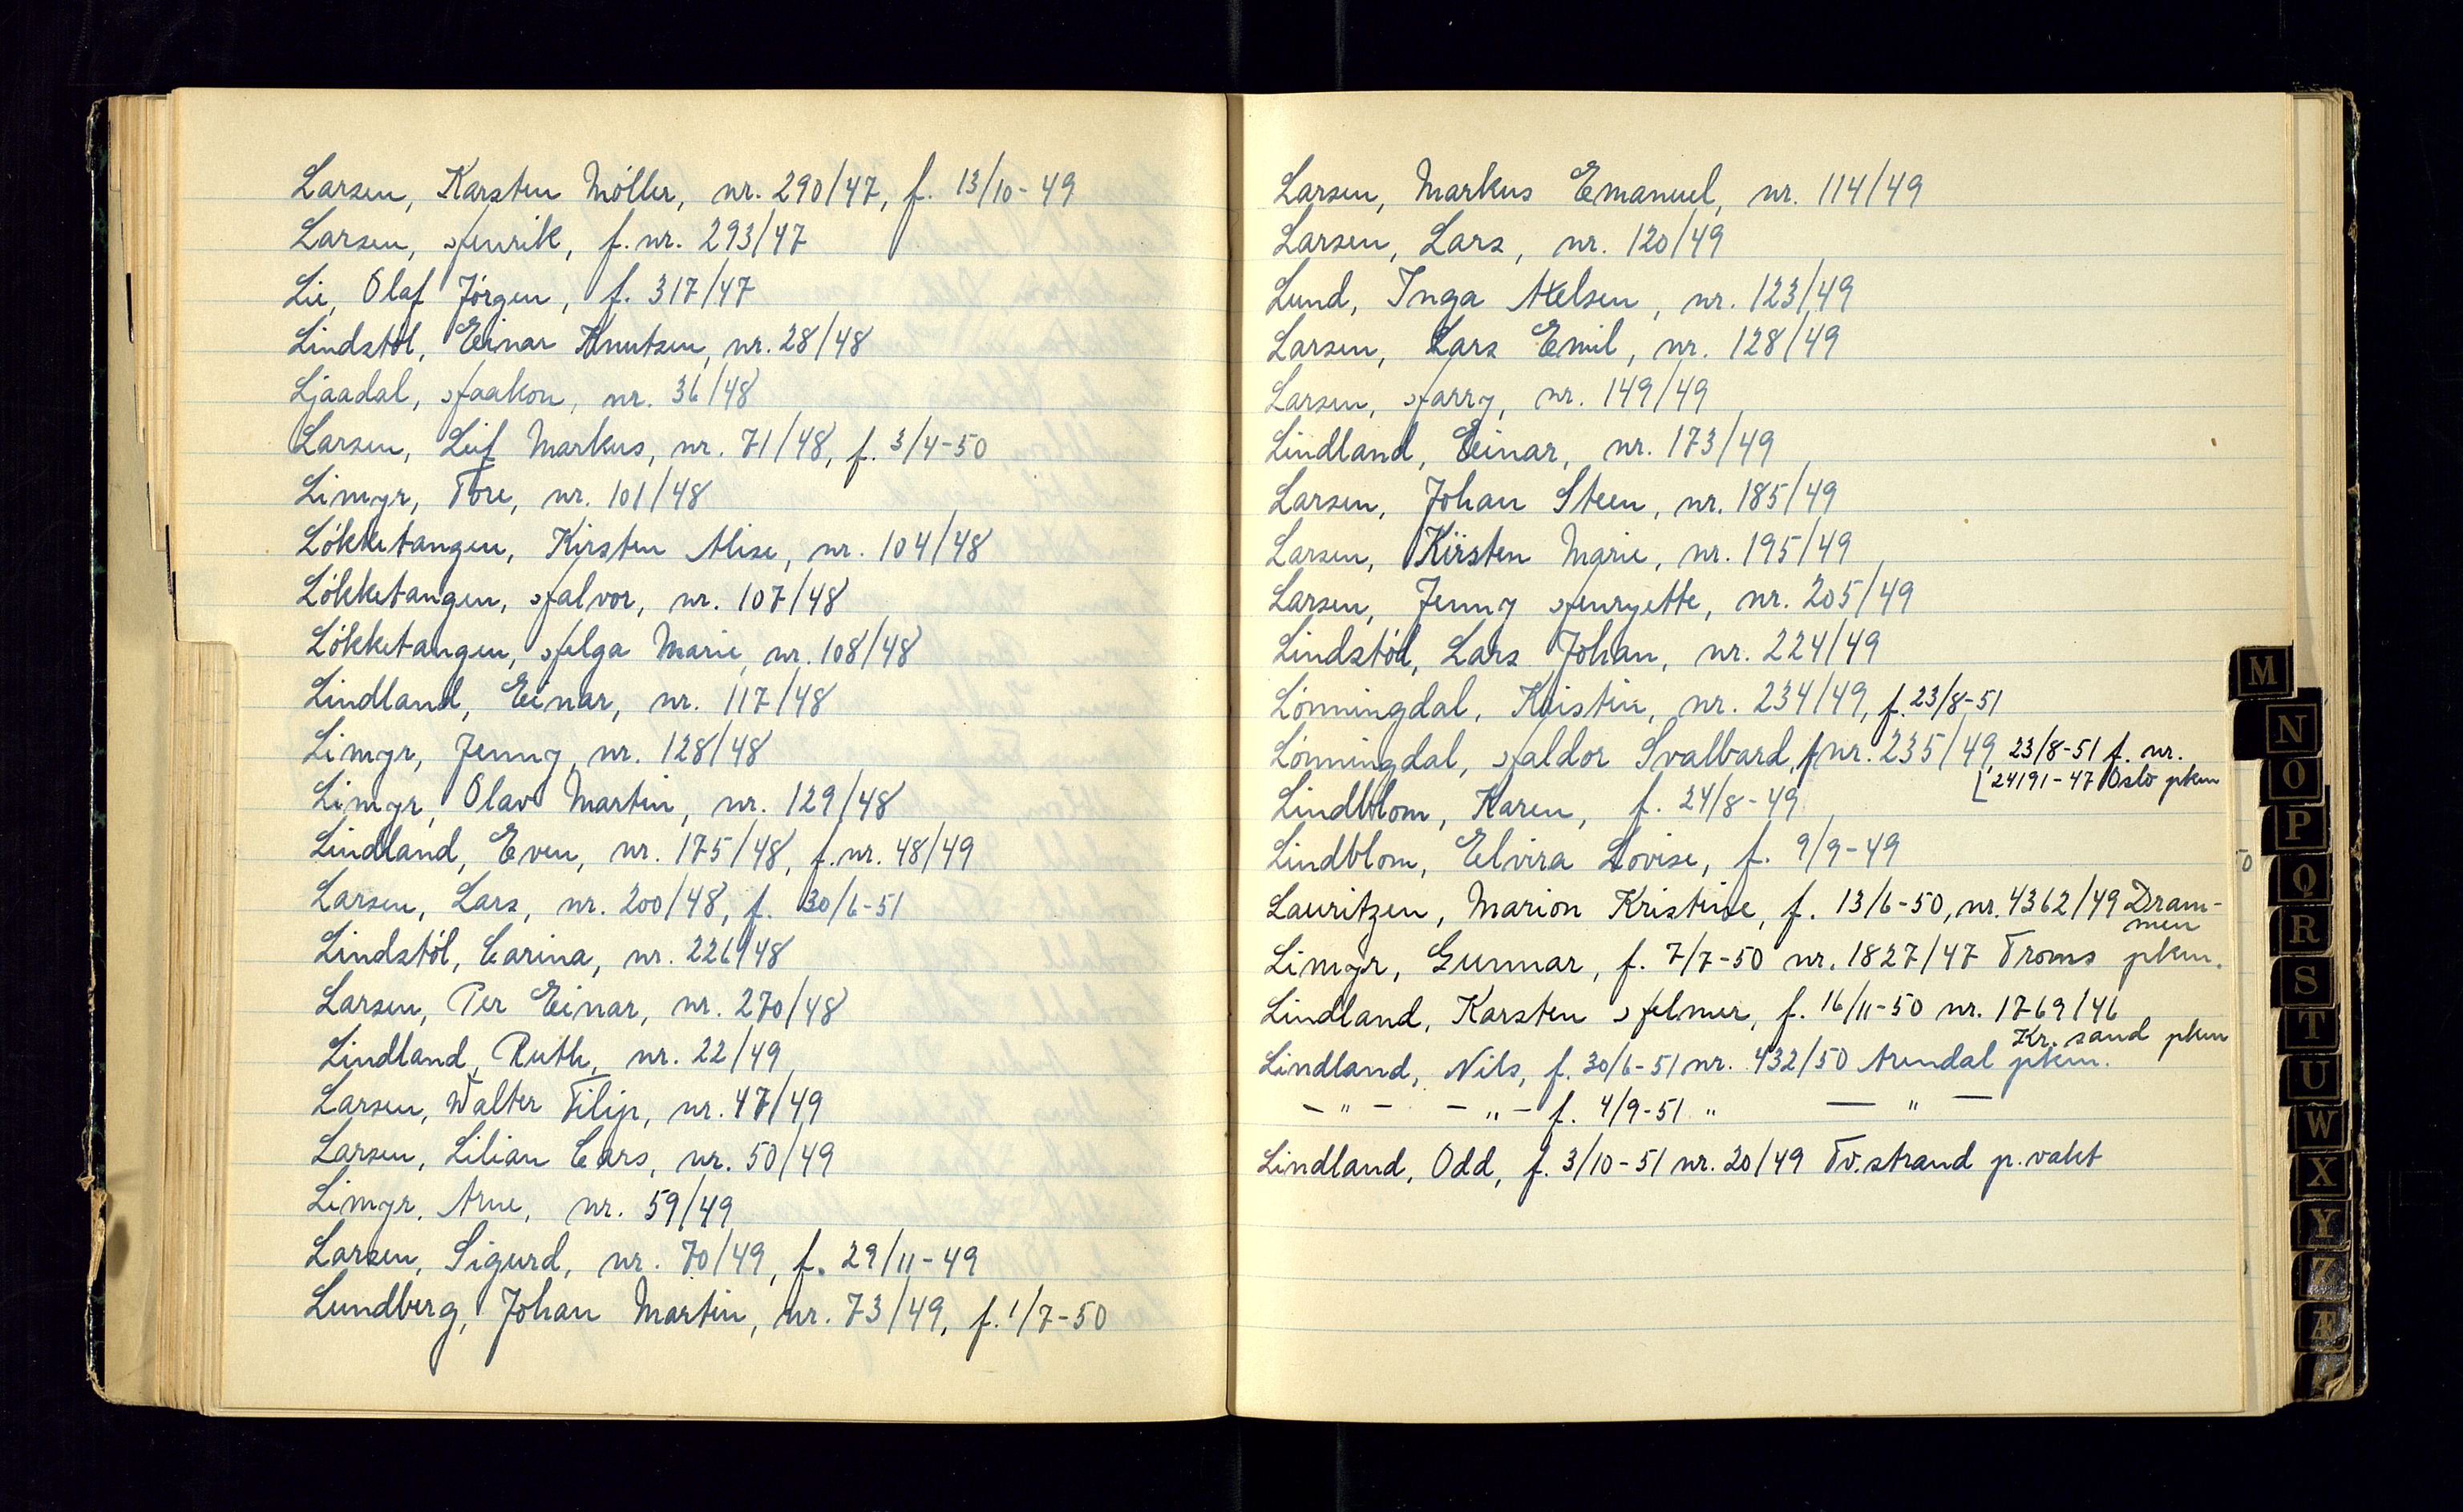 Larsen, Karsten Möller, nr. 290/47, f. 13/10-49
Larsen, Henrik, f. nr. 293/47
Lie, Olaf Jörgen, f. 317/47
Lindstöl, Einar Knutsen, nr. 28/48
Ljaadal, Haakon, nr. 36/48
Larsen, Leif Markus, nr. 71/48, f. 3/4-50
Limyr, Tore, nr. 101/48
Lökketangen, Kirsten Alise, nr. 104/48
Lökketangen, Halvor, nr. 107/48
Lökketangen, Helga Marie, nr. 108/48
Lindland, Einar, nr. 117/48
Limyr, Jenny, nr. 128/48
Limyr, Olav Martin, nr. 129/48
Lindland, Even, nr. 175/48, f. nr. 48/49
Larsen, Lars, nr. 200/48, f. 30/6-51
Lindstöl, Carina, nr. 226/48
Larsen, Per Einar, nr. 270/48
Lindland, Ruth, nr. 22/49
Larsen, Walter Filip, nr. 47/49
Larsen, Lilian Cars, nr. 50/49
Limyr, Arne, nr. 59/49
Larsen, Sigurd, nr. 70/49, f. 29/11-49
Lundberg, Johan Martin, nr. 73/49, f. 1/7-50
Larsen, Markus Emanuel, nr. 114/49
Larsen, Lars, nr. 120/49
Lund, Inga Axelsen, nr. 123/49
Larsen, Lars Emil, nr. 128/49
Larsen, Harry, nr. 149/49
Lindland, Einar, nr. 173/49
Larsen, Johan Steen, nr. 185/49
Larsen, Kirsten Marie, nr. 195/49
Larsen, Jenny Henryette, nr. 205/49
Lindstöl, Lars Johan, nr. 224/49
Lönningdal, Kristin, nr. 234/49, f. 23/8-51
Lönningdal, Haldor Svalbard, f nr. 235/49, 23/8-51 f. nr.
[24191-47 Oslo pkm
Lindblom, Karen, f. 24/8-49
Lindblom, Elvira Lovise, f. 9/9-49
Lauritzen, Marion Kristine, f. 13/6-50, nr. 4362/49 Dram-
men
Limyr, Gunnar, f. 7/7-50 nr. 1827/47 Troms pkm.
Lindland, Karsten Helmer, f. 16/11-50 nr. 1769/46
Kr. sand pkm
Lindland, Nils, f. 30/6-51 nr. 432/50 Arendal pkm.
- " - - " - f. 4/9-51 " — " —
Lindland, Odd, f. 3/10-51 nr. 20/49 Tv.strand p.vakt
M
N
O
P
Q
R
S
T
U
W
X
Y
Z
Æ